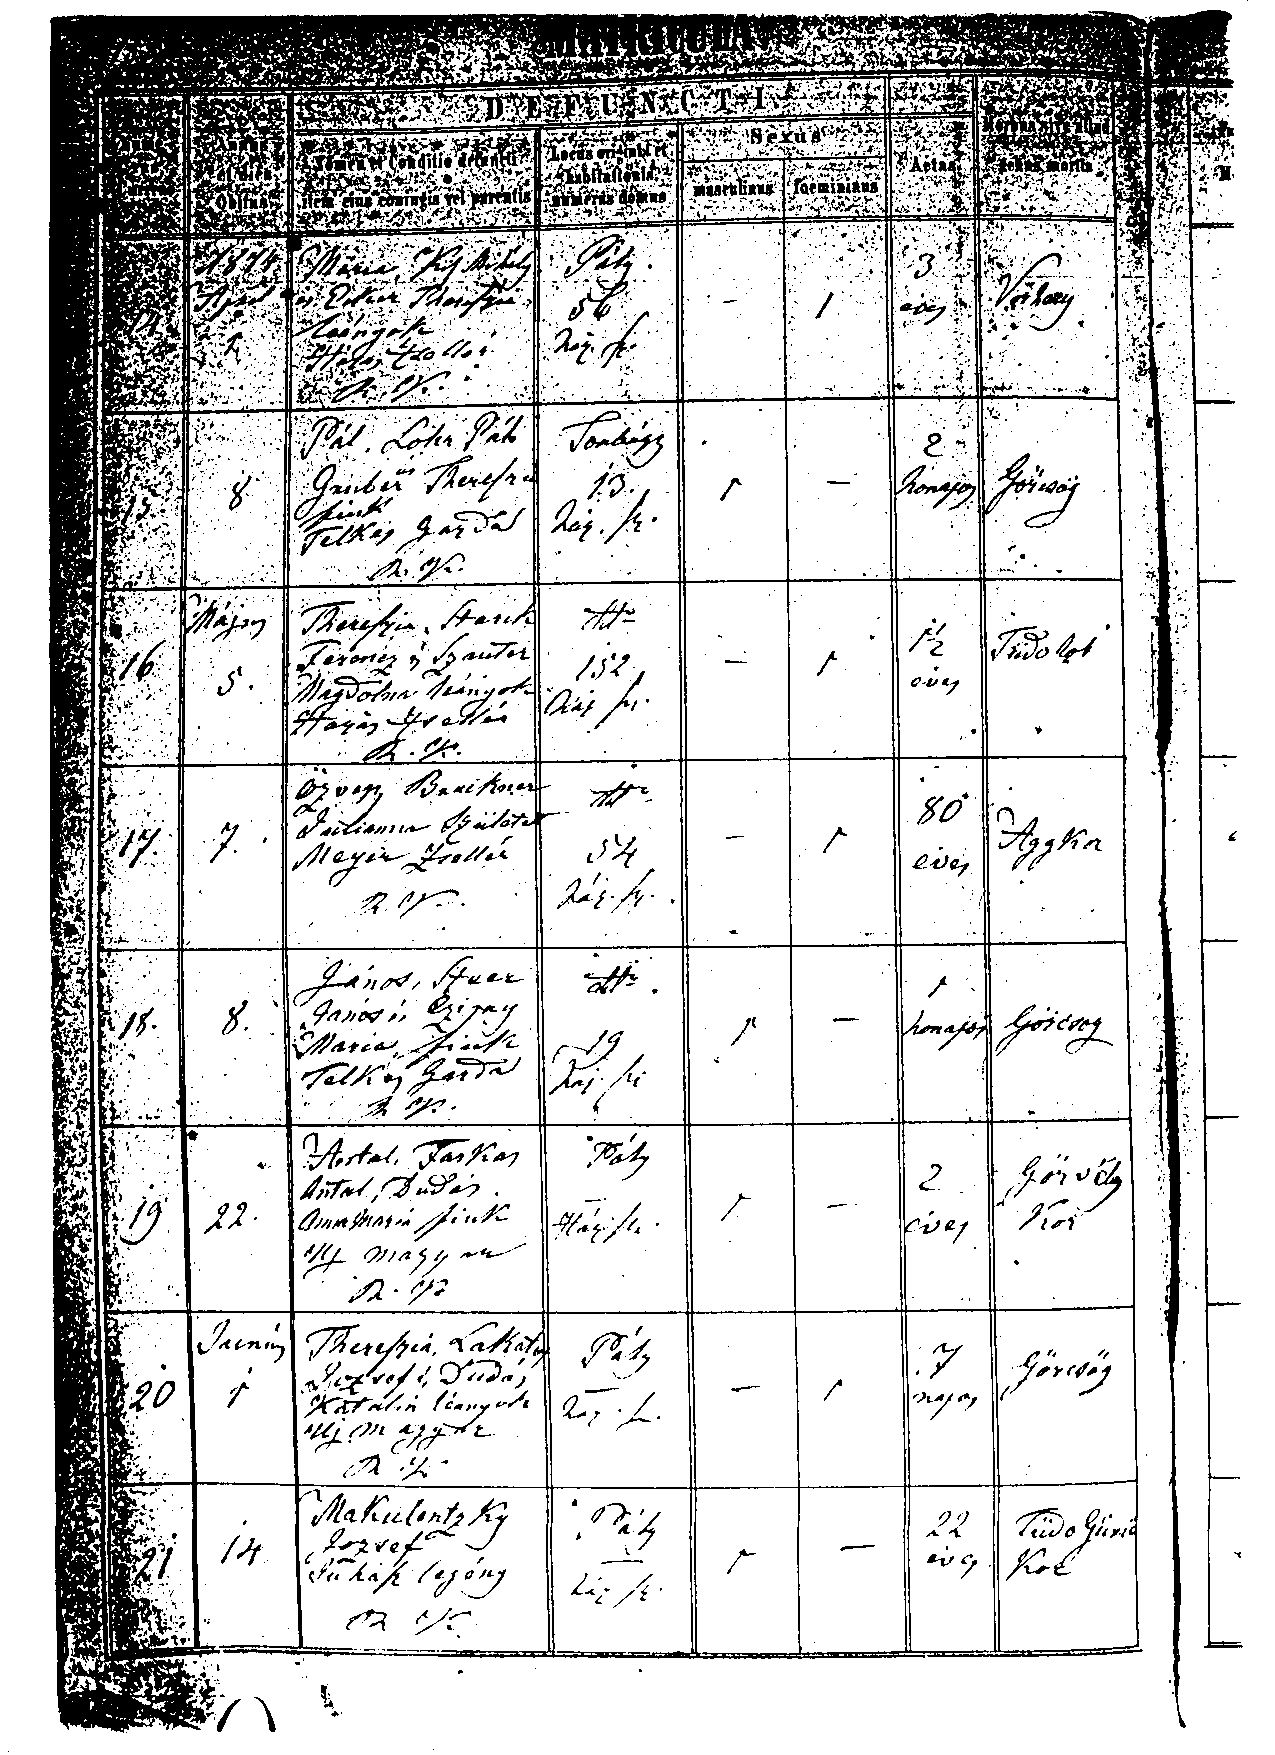 MATRICULA
DEFUNCTI
Annus et dies Obitus
Nomen et Conditio defuncti
item ejus conjugis vel parentis
Locus originis et
habitationis,
numerus domus
Sexus
masculinus
foemininus
Aetas
Morbus
genus mortis
1874
April
Mária, Kis Mihály
és Therészia
leányok
R. K.
Páty.
56
ház. sz.
–
1
3
éves
15.
8
Pál. Lohr Pál
Gruber Therészia
fiuk
Telkes Gazda
R. K.
13.
ház. sz.
1
–
2
honapos
Görcsög
16
Május
5.
Therészia, Starck
Ferencz és Szauter
Magdolna leányok
Házas Zsellér
R. K.
152
ház sz.
–
1
1½
éves
Tüdo lob
17.
7.
Özvegy Bruckner
Julianna Született
Meyer Zsellér
R. K.
54
ház. sz.
–
1
80
éves
Aggkor
18.
8.
János,
János és
Mária, fiuk
Telkes Gazda
R. K.
19
ház. sz.
1
–
1
honapos
Görcsög
19
22.
Antal, Farkas
Antal, Dudás
Anna Mária fiuk
Uj magyar
R. K.
Páty
–
Ház. sz.
1
–
2
éves
Görvély
Kor
20
Junius
1
Therészia, Lakatos
Jozsef é, Dudás
Katalin leányok
Uj magyar
R. K.
Páty
–
ház. sz.
–
1
7
napos
Görcsög
21
14
Makulentzky
Jozsef
legény
R. K.
Páty
–
ház. sz.
1
–
22
éves
Tüdo
Kor